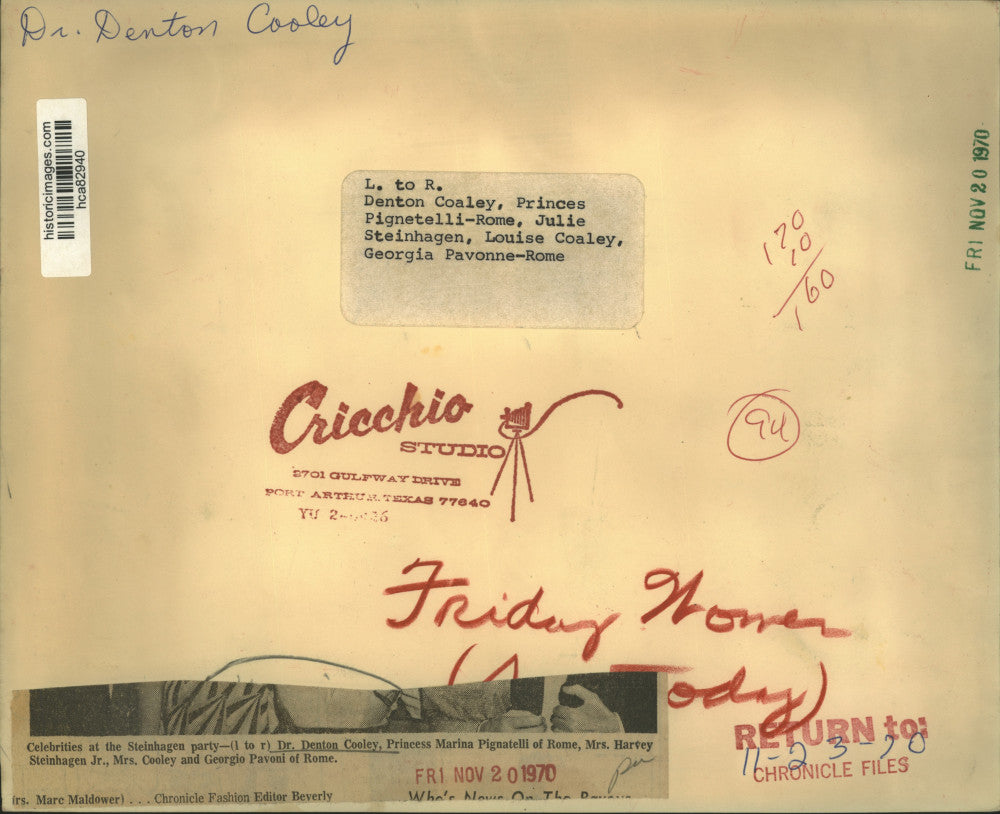 Dr. Denton Cooley
historicimages.com
hca82940
FRI NOV 20 1970
L. to R.
Denton Coaley, Princes
Pignetelli-Rome, Julie
Steinhagen, Louise Coaley,
Georgia Pavonne-Rome
170
10
160
94
Cricchio
STUDIO
2701 GULFWAY DRIVE
PORT ARTHUR, TEXAS 77640
YU
Friday Women
Today)
RETURN to:
11-23-70
CHRONICLE FILES
Celebrities at the Steinhagen party—(l to r) Dr. Denton Cooley, Princess Marina Pignatelli of Rome, Mrs. Harvey
Steinhagen Jr., Mrs. Cooley and Georgio Pavoni of Rome.
FRI NOV 20 1970
irs. Marc Maldower) . . . Chronicle Fashion Editor Beverly
Who's News On The